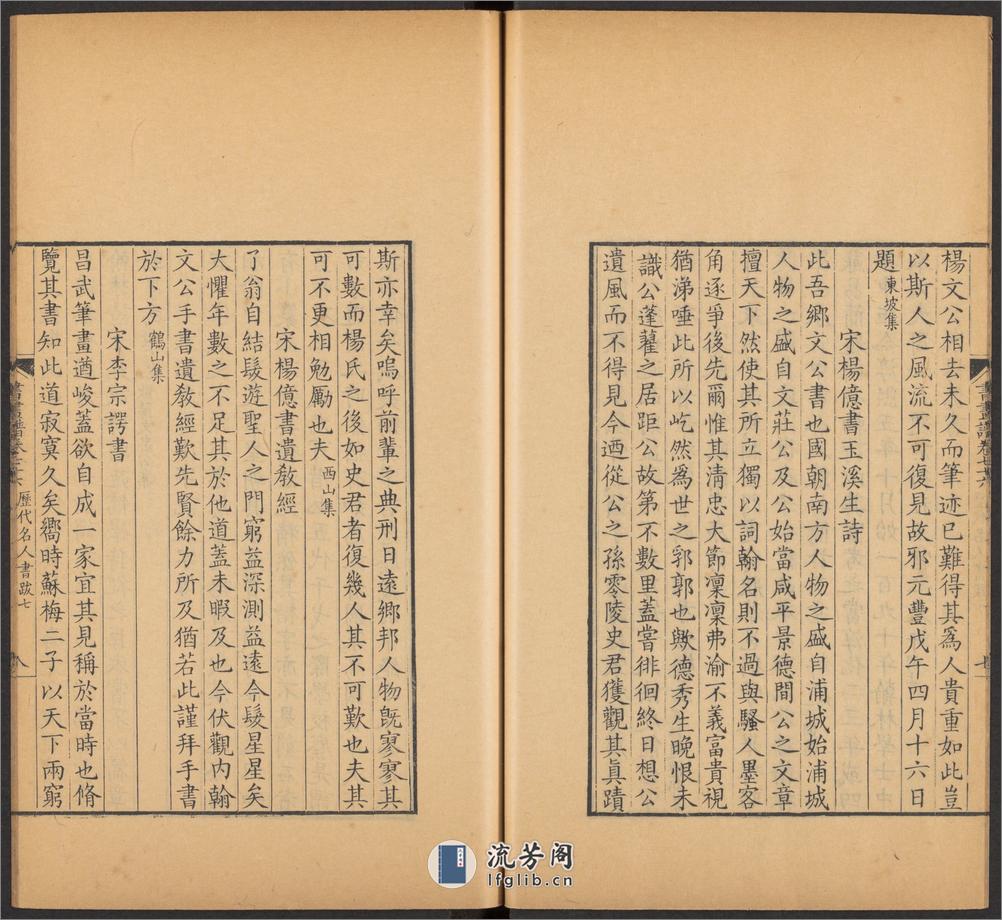 楊文公相去未久而筆迹已難得其為人貴重如此豈
以斯人之風流不可復見故邪元豐戊午四月十六日
題東坡集
宋楊億書玉溪生詩
此吾鄉文公書也國朝南方人物之盛自浦城始浦城
人物之盛自文莊公及公始當咸平景德間公之文章
擅天下然使其所立獨以詞翰名則不過與騷人墨客
角逐爭後先爾惟其清忠大節凜凜弗渝不義富貴視
猶涕唾此所以屹然為世之郛郭也歟德秀生晚恨未
識公蓬藋之居距公故第不數里蓋嘗徘徊終日想公
遺風而不得見今迺從公之孫零陵史君獲觀其真蹟
斯亦幸矣嗚呼前輩之典刑日遠鄉邦人物旣寥寥其
可數而楊氏之後如史君者復幾人其不可歎也夫其
可不更相勉勵也夫西山集
宋楊億書遺敎經
了翁自結髮遊聖人之門窮益深測益遠今髮星星矣
大懼年數之不足其於他道蓋未暇及也今伏觀內翰
文公手書遺敎經歎先賢餘力所及猶若此謹拜手書
於下方鶴山集
宋李宗諤書
昌武筆畫遒峻蓋欲自成一家宜其見稱於當時也脩
覽其書知此道寂寞久矣嚮時蘇梅二子以天下兩窮
歷代名人書跋七
八
流芳阁
lfglib.cn